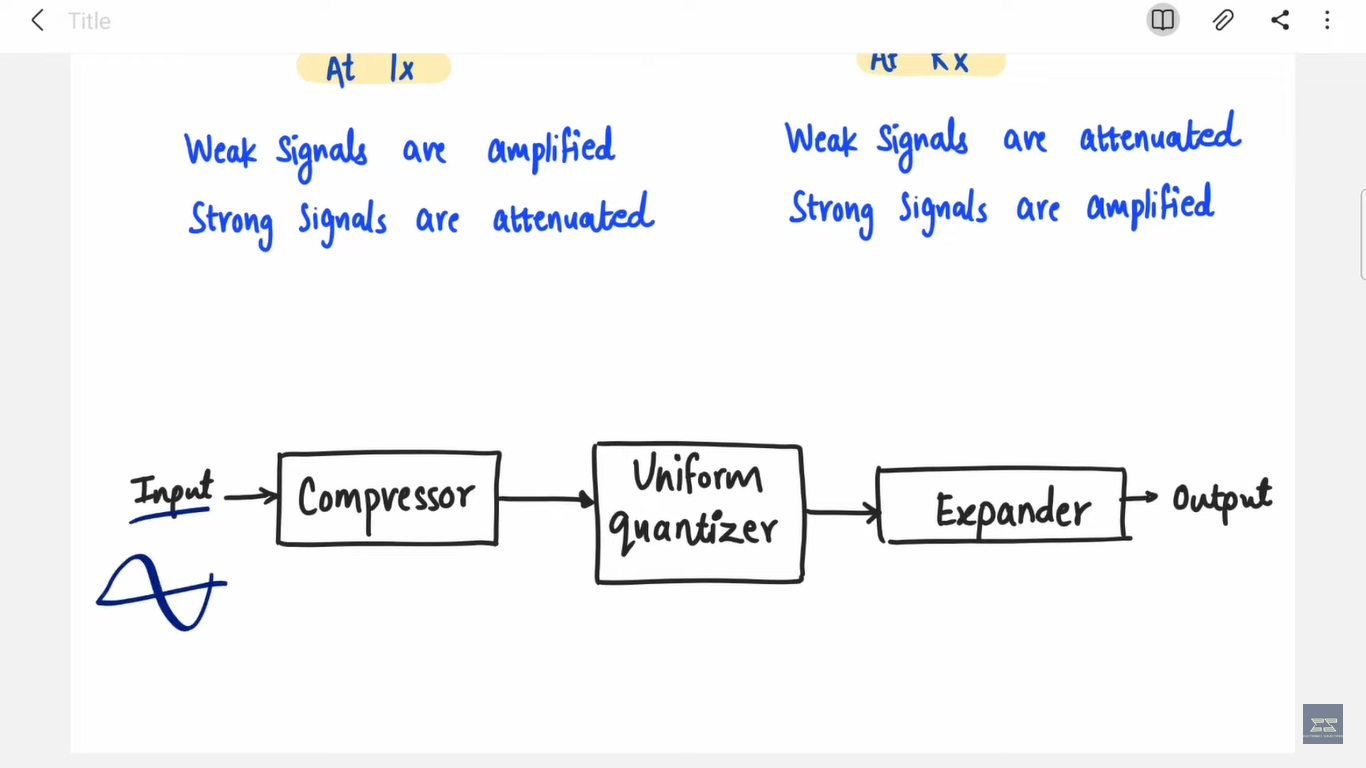 Title
At Tx
At Rx
Weak Signals are amplified
Strong Signals are attenuated
Weak Signals are attenuated
Strong Signals are amplified
Input
Compressor
Uniform
quantizer
Expander
Output